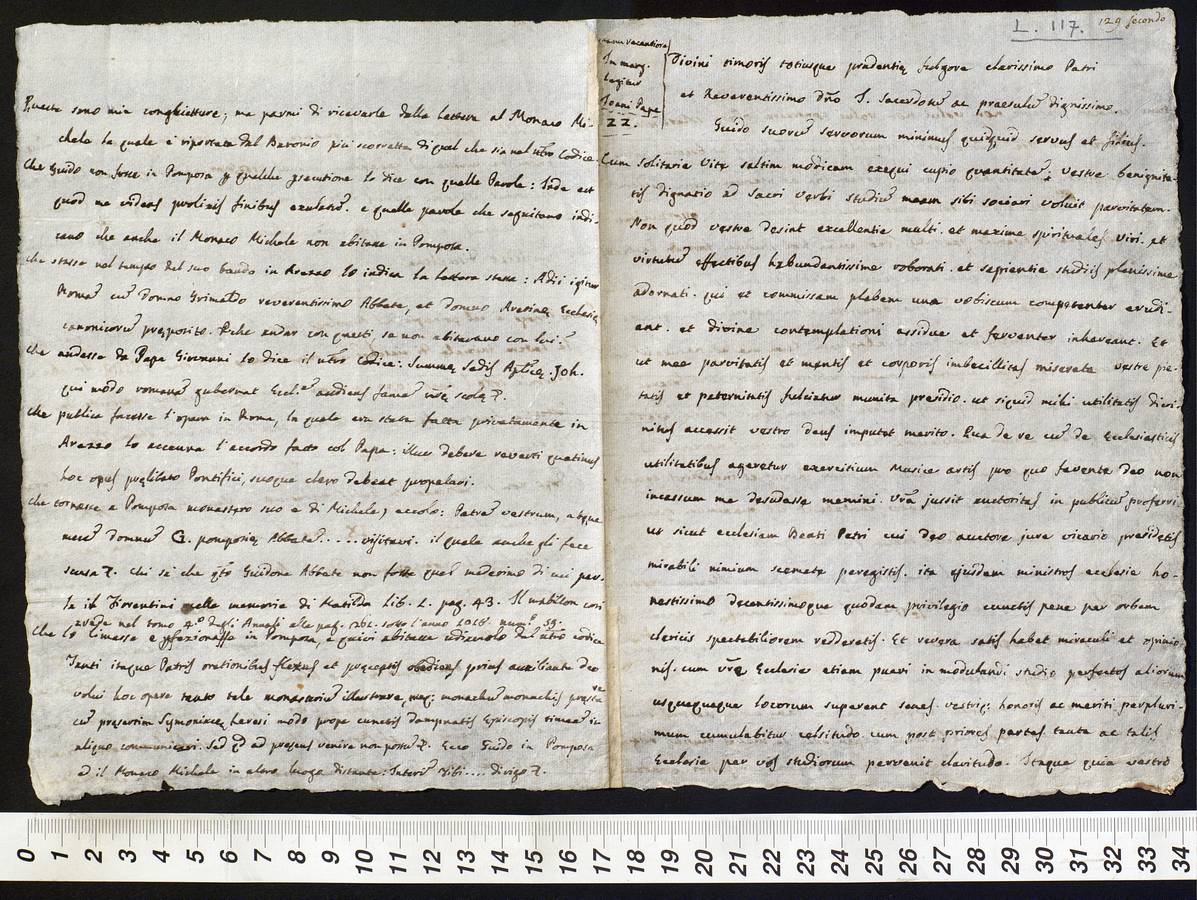 Queste sono mie conghietture; ma parmi di ricavarle dalla lettera al Monaco Mi-
chele la quale è riportata dal Baronio più scorretta di quel che sia nel ñtro Codice.
Che Guido non fosse in Pomposa p qualche psecutione lo dice con quelle Parole: Inde est
quod me vides prolixis finibus exulatũ. e quelle parole che seguitano indi-
cano che anche il Monaco Michele non abitava in Pomposa.
che stasse nel tempo del suo bando in Arezzo lo indica la lettera stessa: Adii igitur
Romã cũ domno Grimaldo reverentissimo Abbate, et domno Aretinę Ecclesię
canonicorũ pręposito. Pche andar con questi, se non abitavano con lui?
che andasse da Papa Giovanni lo dice il ñtro Codice: Summę Sedis Aplicę Joh.
qui modo romanã gubernat Eccl. audiens famã ñrę scolę &.
che publica facesse l'opera in Roma, la quale era stata fatta privatamente in
Arezzo lo accenna l'accordo fatto col Papa: illuc debere reverti quatinus
hoc opus pręlibato Pontifici, suoque clero debeat propalari.
che tornasse a Pomposa monastero suo e di Michele, eccolo: Patrẽ vestrum, atque
meũ domnũ G. pomposię Abbatẽ ..... visitavi. il quale anche gli fece
scusa &. Chi sà che q̃to Guidone Abbate non fosse quel medesimo di cui par-
la il Fiorentini nelle memorie di Matilda Lib. 2. pag. 43. Il mabillon così
crede nel tomo 4.º degli Annali alla pag. 262. sotto l'anno num.º 59.
Che lo limasse e pfezionasse in Pomposa, e quivi abitasse il ñtro codice
Tanti itaque Patris orationibus flexus et pręceptis obediens prius auxiliante deo
volui hoc opere tanto tale monasteriũ illustrare meq; monachũ monachis pręstare
cũ pręsertim Symoniacę heresi modo prope cunctis dampnatis Episcopis timeã in
aliquo communicari. Sed q̃ ad pręsens venire non possũ &. Ecco Guido in Pomposa
e il Monaco Michele in altro luogo distante: Interĩ tibi .... dirigo &.
L. 117. 129 secondo
manu recentiore
In marg.
legitur
Joani Pape
XX.
Divini timoris totiusque prudentię fulgore clarissimo Patri
et Reverentissimo Dño T. Sacerdotũ ac praesulũ dignissimo.
Guido suorũ servorum minimus quidquid servus et filius.
Cum solitarię vitę saltim modicam exequi cupio quantitatẽ, vestre benigni-
tatis dignatio ad sacri verbi studiũ meam sibi sociari voluit parvitatem.
Non quod vestre desint excellentie multi. et maxime spirituales viri. et
virtutũ effectibus habundantissime roborati. et sapientie studiis plenissime
adornati. qui et commissam plebem una vobiscum competenter erudi-
ant. et divine contemplationi assidue et ferventer inhereant. Et
ut mee parvitatis et mentis et corporis imbecillitas miserata vestre pie-
tatis et paternitatis fulciatur munita presidio. ut siquid mihi utilitatis divi-
nitus accessit vestro deus imputet merito. Qua de re cũ de ecclesiasticis
utilitatibus ageretur exercitium musice artis pro quo favente deo non
incassum me desudasse memini. Vrã jussit auctoritas in publicũ proferri.
ut sicut ecclesiam Beati Petri cui deo auctore jure vicario presidetis
mirabili nimium scemate peregistis. ita ejusdem ministros ecclesie ho-
nestissimo decentissimoque quodam privilegio cunctis pene per orbem
clericis spectabiliorem redderetis. Et revera satis habet miraculi et opinio-
nis. cum vrę Ecclesie etiam pueri in modulandi studio perfectos aliorum
usquequaque locorum superent senes. vestriq; honoris ac meriti perpluri-
mum cumulabitur celsitudo. cum post priores partes tanta ac talis
Ecclesie per vos studiorum pervenit claritudo. Itaque quia vestro
0 1 2 3 4 5 6 7 8 9 10 11 12 13 14 15 16 17 18 19 20 21 22 23 24 25 26 27 28 29 30 31 32 33 34